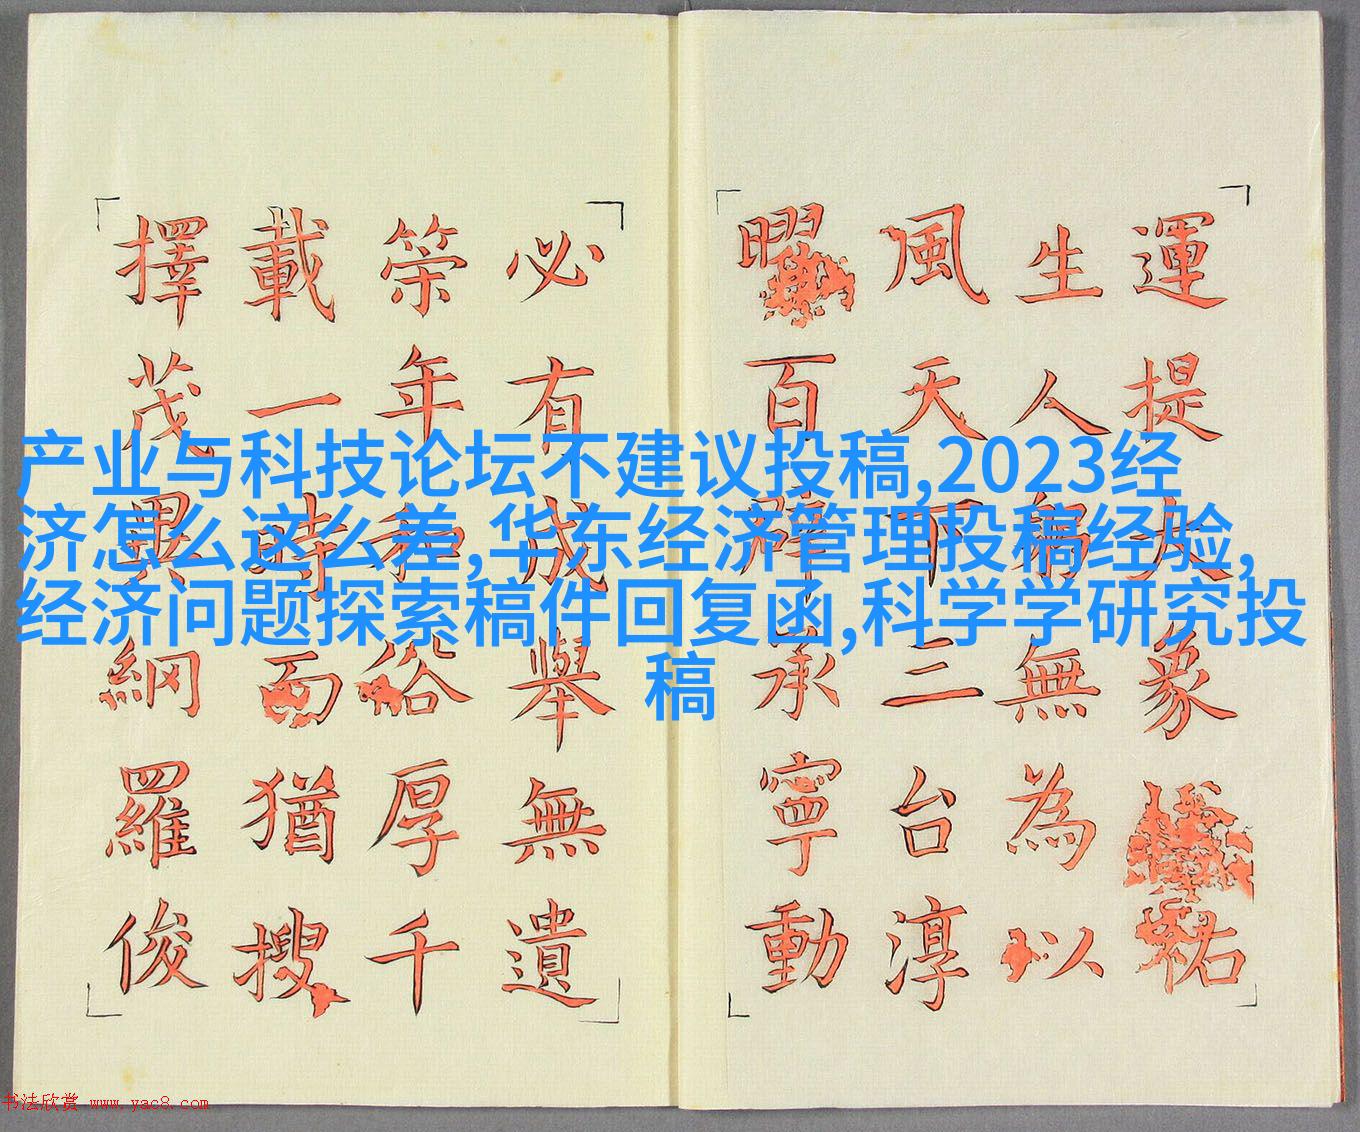 产业与科技论坛不建议投稿,2023经
济怎么这么差,华东经济管理投稿经验,
经济问题探索稿件回复函,科学学研究投
稿
運提大象祐
生人無為以
風天下三台淳
曜百辟承寧動
必有成舉無遺
筞年和俗厚千
載一時而猶搜
擇茂異網羅俊
书法欣赏 www.yac8.com